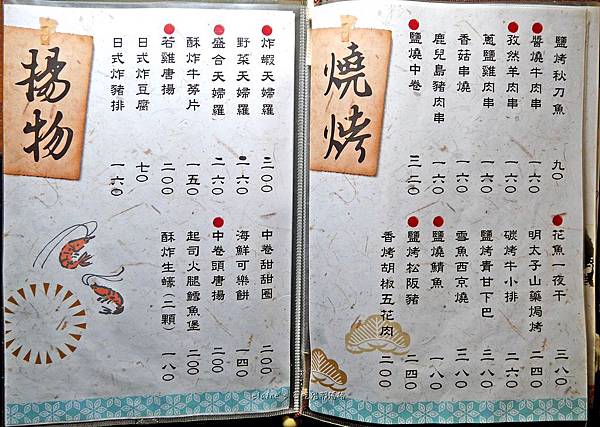 燒烤
鹽烤秋刀魚 九〇
醬燒牛肉串 一六〇
孜然羊肉串 一六〇
蔥鹽雞肉串 一六〇
香菇串燒 一六〇
鹿兒島豬肉串 一六〇
鹽燒中卷 三二〇
花魚一夜干 三八〇
明太子山藥焗烤 二四〇
碳烤牛小排 二六〇
鹽烤青甘下巴 三八〇
雪魚西京燒 三八〇
鹽燒鯖魚 一八〇
鹽烤松阪豬 二四〇
香烤胡椒五花肉 二〇〇
揚物
炸蝦天婦羅 二〇〇
野菜天婦羅 一六〇
盛合天婦羅 二六〇
酥炸牛蒡片 一五〇
若雞唐揚 二〇〇
日式炸豆腐 七〇
日式炸豬排 一六〇
中卷甜甜圈 二〇〇
海鮮可樂餅 一四〇
中卷頭唐揚 二〇〇
起司火腿鱈魚堡 二〇〇
酥炸生蠔(二顆) 一八〇